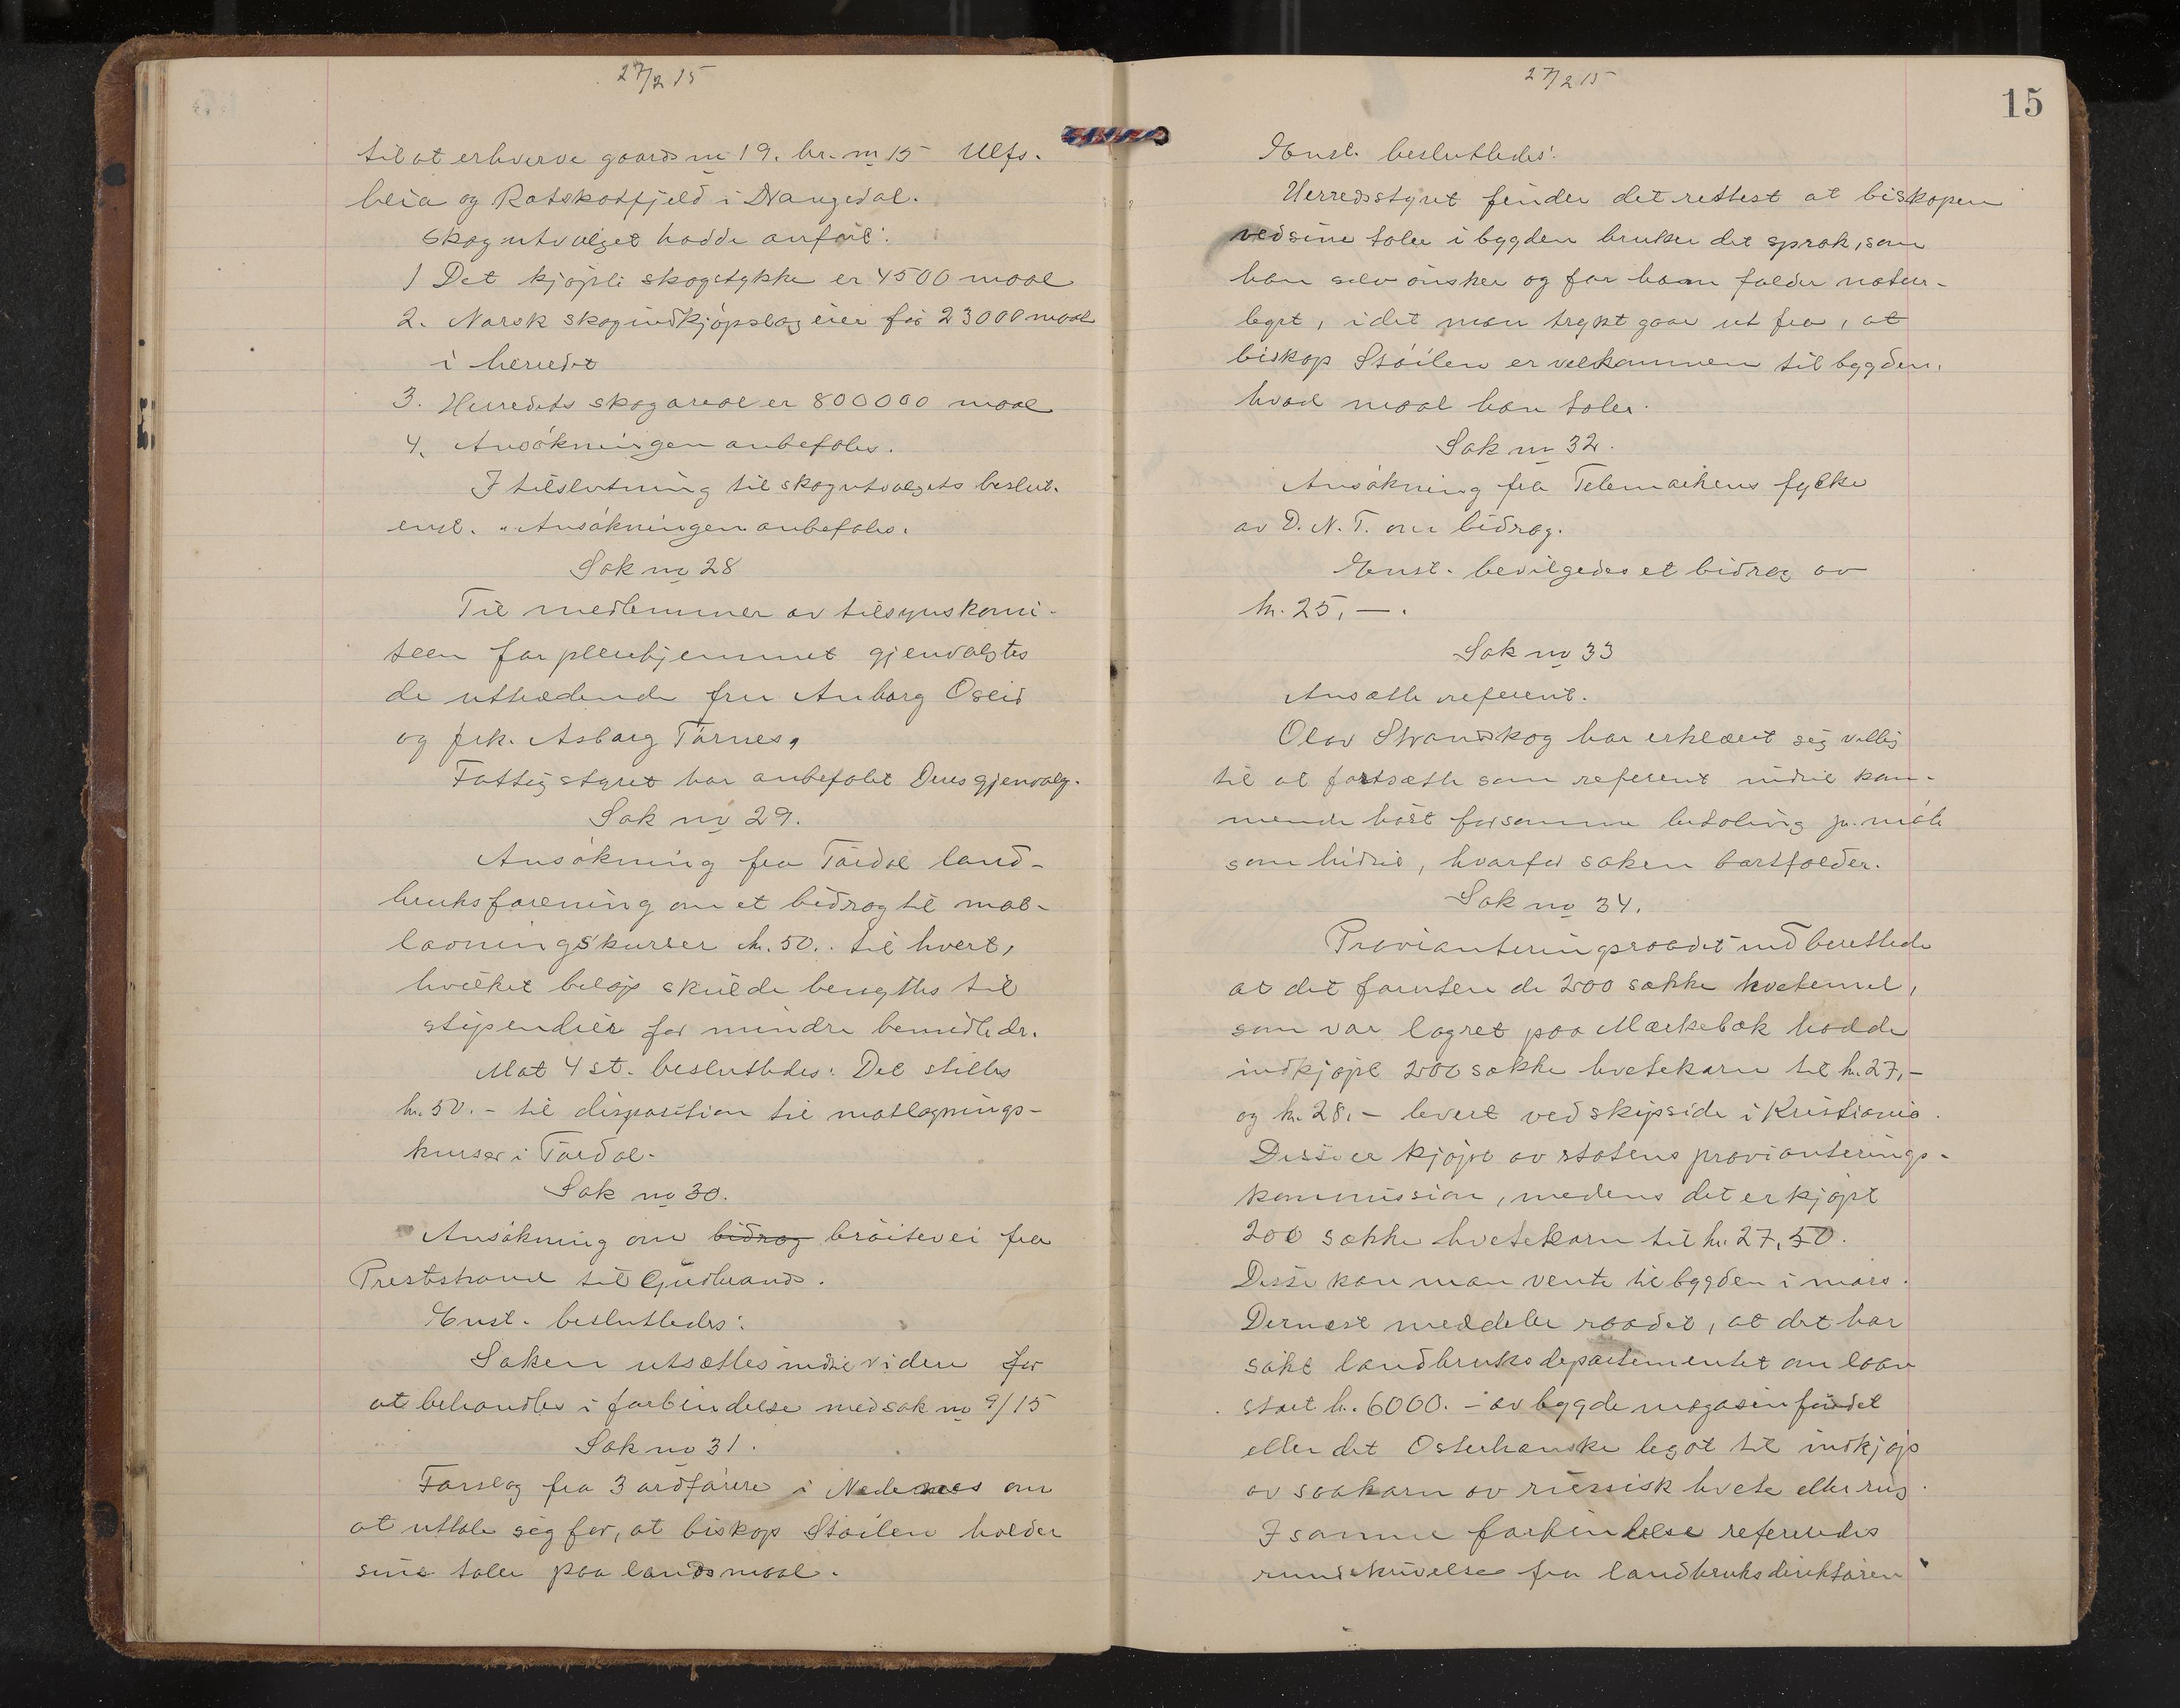 27/2 15
til at erhverve gaards no 19. br. no 15 Ulfs-
leia og Ratskotfjeld i Drangedal.
Skogutvalget hadde anført:
1 Det kjøpte skogstykke er 4500 maal
2. Norsk skogindkjøpslag eier før 23000 maal
i herredet
3. Herredets skogareal er 800000 maal
4. Ansøkningen anbefales.
I tilslutning til skogutvalgets beslut.
enst. "Ansøkningen anbefales.
Sak no 28
Til medlemmer av tilsynskomi-
teen for pleiehjemmet gjenvalgtes
de uttrædende fru Anborg Oseid
og frk. Asborg Tørnes,
Fattigstyret har anbefalt Deres gjenvalg.
Sak no 29.
Ansøkning fra Tørdal land-
bruksforening om et bidrag til mat-
lavningskurser kr. 50.. til hvert,
hvilket beløp skulde benyttes til
stipendier for mindre bemidlede.
Mot 4 st. besluttedes: Det stilles
kr. 50.- til disposition til matlagnings-
kurser i Tørdal.
Sak no 30.
Ansøkning om bidrag brøitevei fra
Preststrand til Gudbrands.
Enst. besluttedes:
Saken utsættes indtil videre for
at behandles i forbindelse med sak no 9/15
Sak no 31.
Forslag fra 3 ordførere i Nedenes om
at uttale seg for, at biskop Støilen holder
sine taler paa landsmaal.
27/2 15
15
Enst. besluttedes:
Herredsstyret finder det rettest at biskopen
ved sine taler i bygden bruker det sprok, som
han selv ønsker og for ham falder natur-
legst, idet man trygt gaar ut fra, at
biskop Støilen er velkommen til bygden,
hvad maal han taler.
Sak no 32.
Ansøkning fra Telemarkens fylke
av D. N. T. om bidrag.
Enst. bevilgedes et bidrag av
kr. 25,—.
Sak no 33
Ansætte referent.
Olav Strandskog har erklært sig villig
til at fortsætte som referent indtil kom-
mende høst for samme betaling pr. møte
som hidtil, hvorfor saken bortfalder.
Sak no 34.
Provianteringsraadet indberettede
at det foruten de 200 sække hvetemel,
som var lagret paa Mærkebæk hadde
indkjøpt 200 sække hvetekorn til kr. 27,-
og kr. 28.- levert ved skipside i Kristiania.
Disse er kjøpt av statens provianterings-
kommission, medens det er kjøpt
200 sække hvetekorn til kr. 27,50.
Disse kan man vente til bygden i mars.
Dernæst meddeler raadet, at det har
søkt landbruksdepartementet om laan
stort kr. 6000.- av bygdemagasinfondet
eller det Osterhauske legat til indkjøp
av saakorn av russisk hvete eller rug.
I samme forbindelse refereredes
rundskrivelse fra landbruksdirektøren